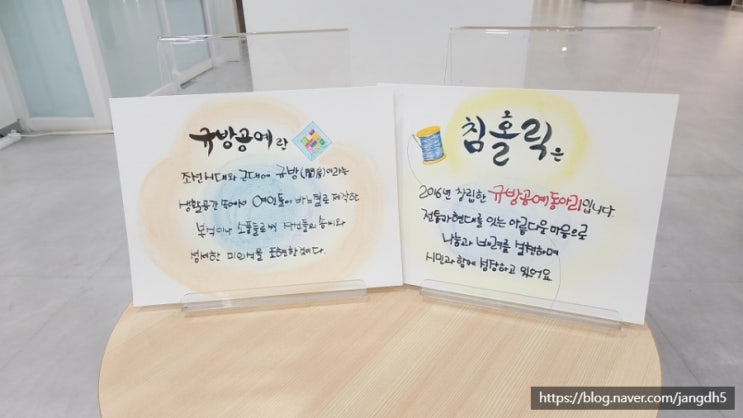 규방공예란
조선시대와 근대에 규방(閨房)이라는
생활공간 속에서 여인들이 바느질로 제작한
복식이나 소품들로써 여인들의 솜씨와
섬세한 미의식을 표현한 것이다.
침홀릭은
2016년 창립한 규방공예동아리입니다
전통과 현대를 잇는 아름다운 마음으로
나눔과 배려를 실현하며
시민과 함께 성장하고 있어요
https://blog.naver.com/jangdh5